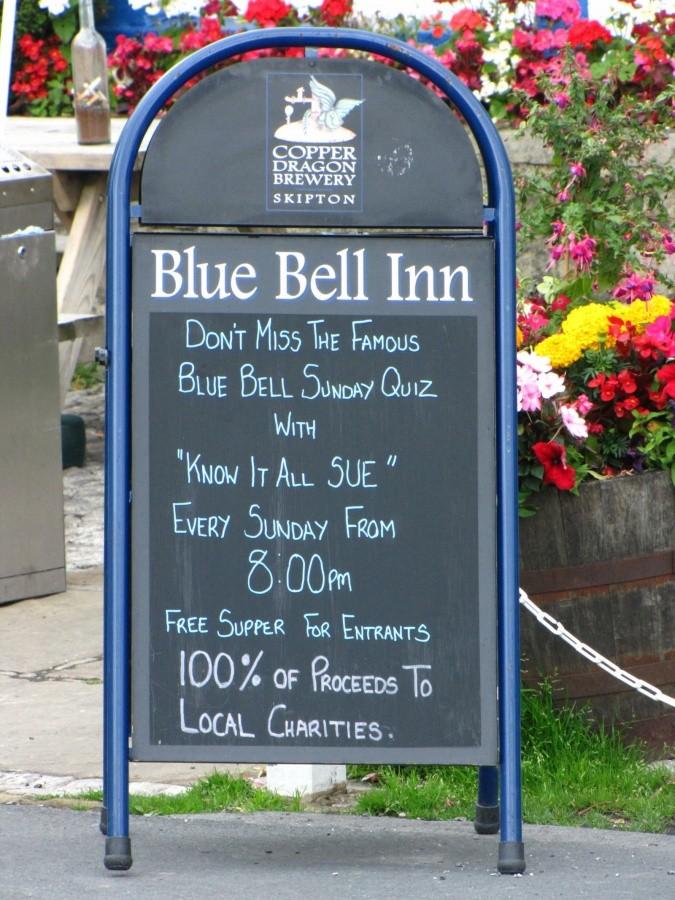 COPPER
DRAGON
BREWERY
SKIPTON
Blue Bell Inn
DON'T MISS THE FAMOUS
BLUE BELL SUNDAY QUIZ
WITH
"KNOW IT ALL SUE"
EVERY SUNDAY FROM
8.00PM
FREE SUPPER FOR ENTRANTS
100% OF PROCEEDS TO
LOCAL CHARITIES.